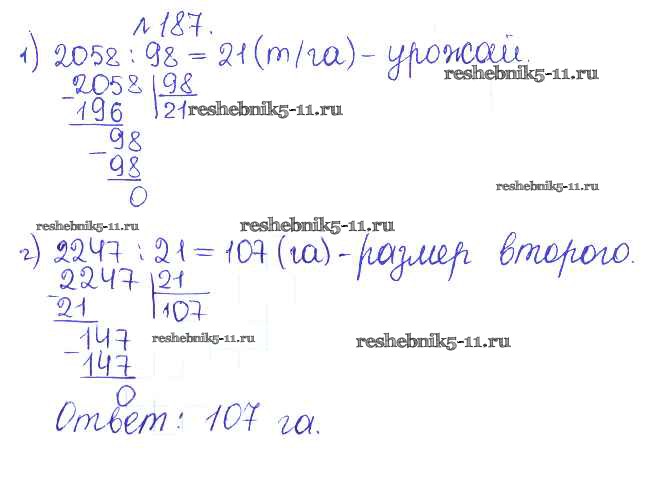 №187.
1) 2058 : 98 = 21 (т/га) - урожай.
2058 98
reshebnik5-11.ru
- 196 21 reshebnik5-11.ru
98
- 98
reshebnik5-11.ru
0
reshebnik5-11.ru reshebnik5-11.ru
2) 2247 : 21 = 107 (га) - размер второго.
2247 21
- 21 107
147 reshebnik5-11.ru reshebnik5-11.ru
- 147
0
Ответ: 107 га.